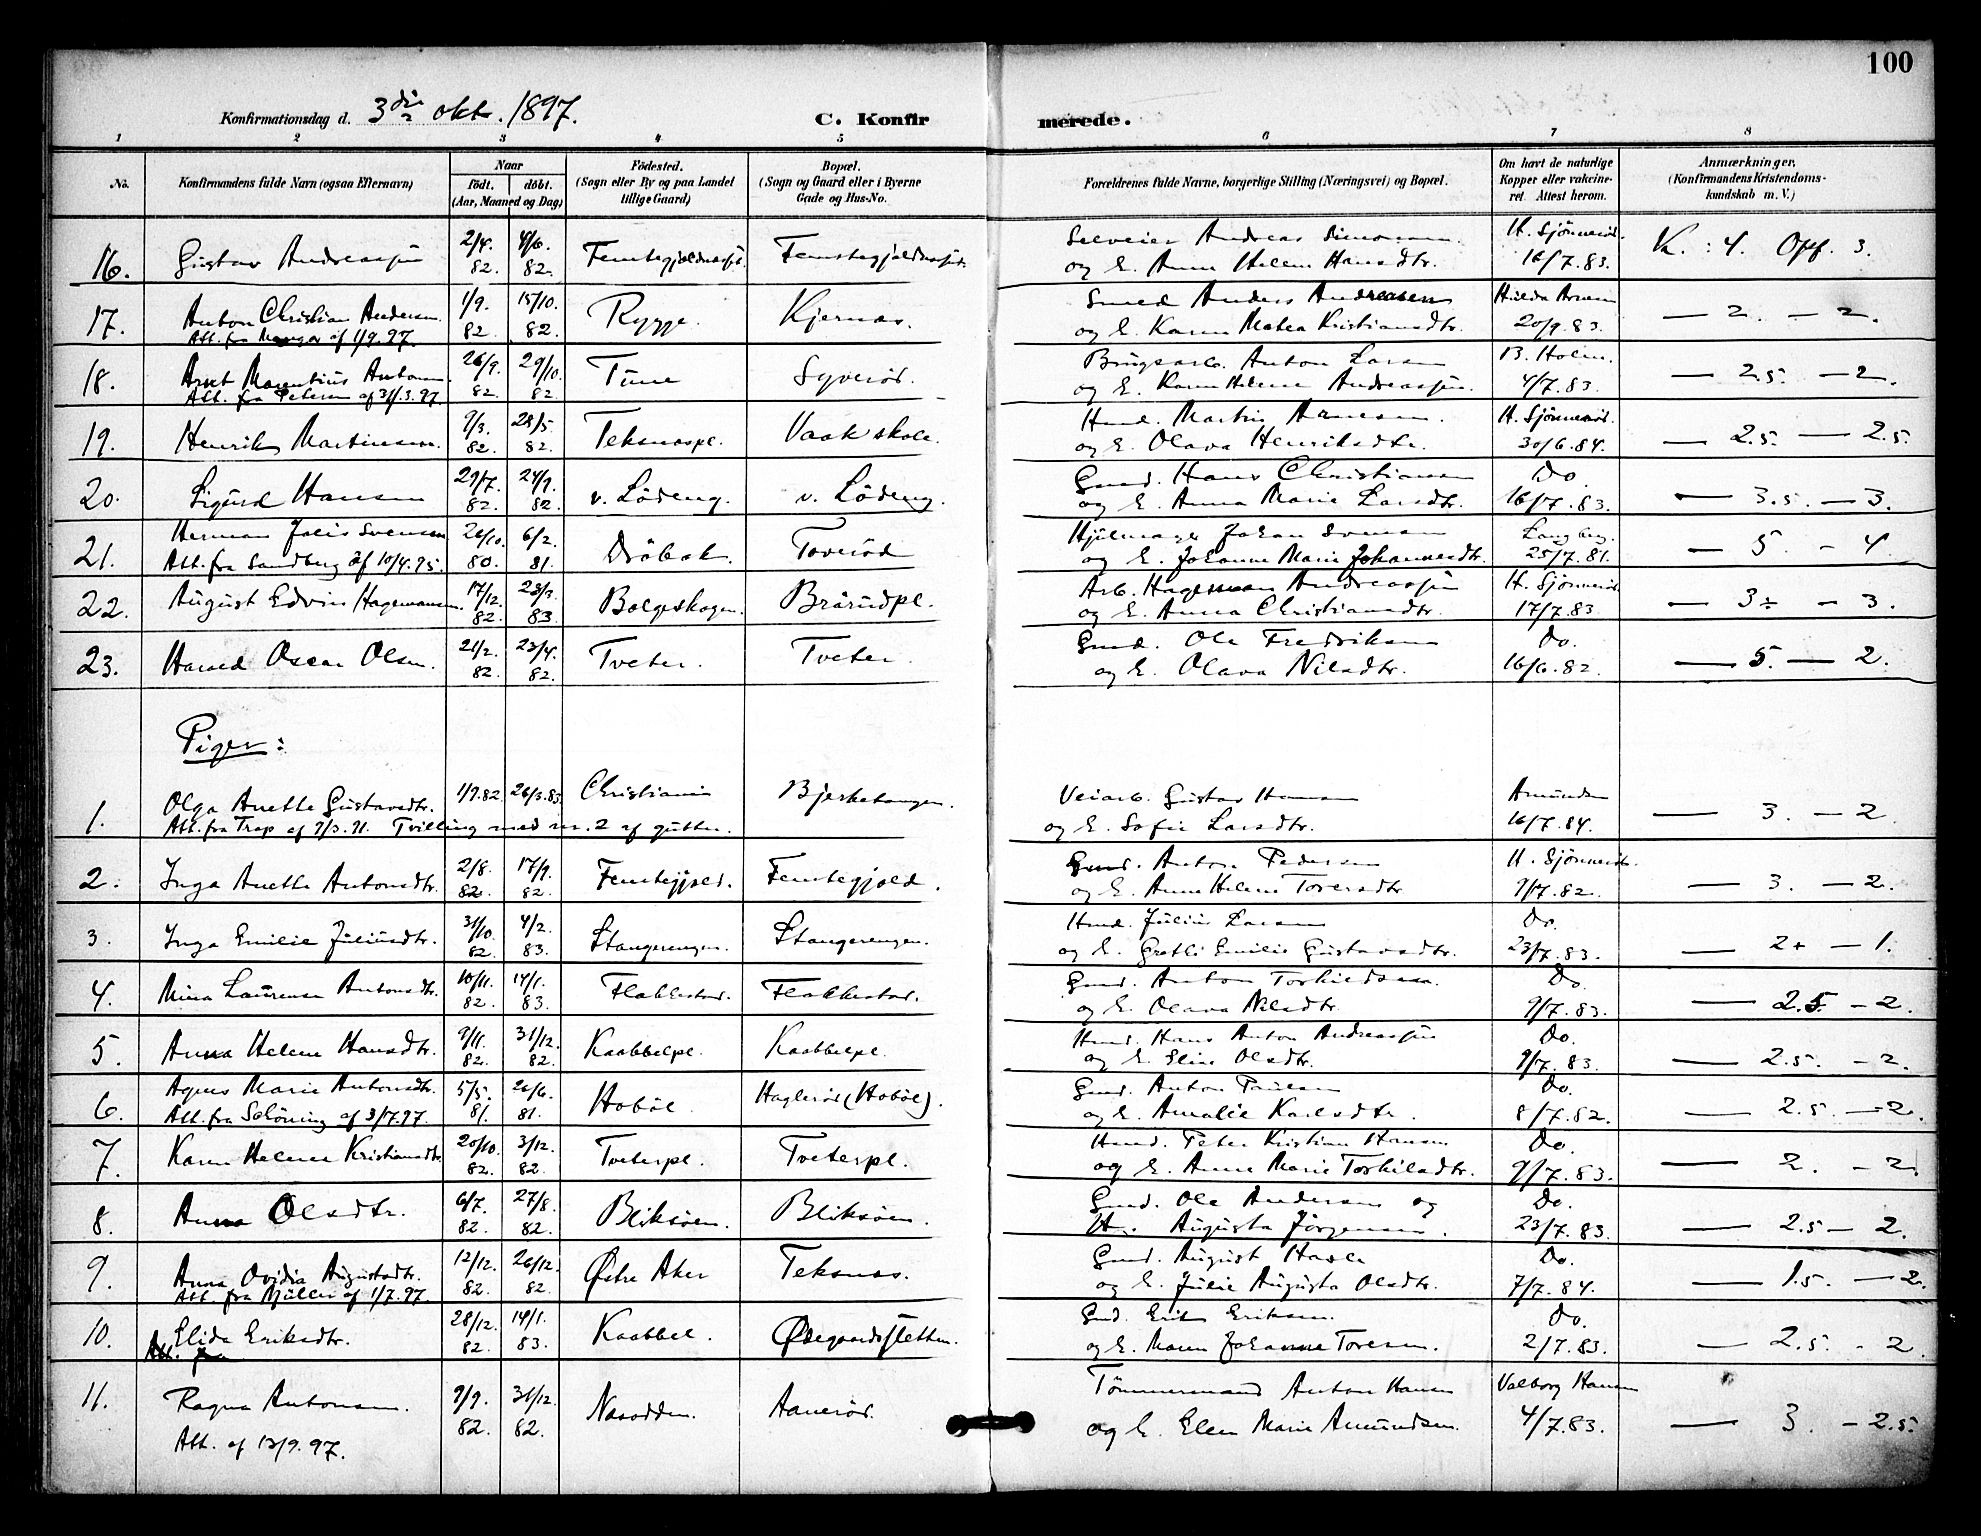 100
Konfirmationsdag d. 3die oktr. 1897.
C. Konfirmerede.
1 2 3 4 5 6 7 8
No. Konfirmandens fulde Navn (ogsaa Efternavn) Naar födt. döbt. (Aar, Maaned og Dag) Födested. (Sogn eller By og paa Landet tillige Gaard) Bopæl. (Sogn og Gaard eller i Byerne Gade og Hus-No.) Forældrenes fulde Navne, borgerlige Stilling (Næringsvei) og Bopæl. Om havt de naturlige Kopper eller vakcineret. Attest herom. Anmærkninger. (Konfirmandens Kristendomskundskab m. V.)
16. Gustav Andreassen 2/4. 82. 4/6. 82. Selveier Andreas Simonsen H. Sjönneröd. K. : 4. Opf. 3.
og E. Anne Helene Hansdtr. 16/7.83.
17. Anton Christian Andersen 1/9. 82 15/10. 82. Rygge. Kjernas. Smed Anders Andreasen — 2. — 2.
Att. fra af 1/9.97. og E. Karen Matea Kristiansdtr. 20/9.83.
18. Arnt Antonsen 26/9. 82. 29/10. 82. Tune Syveröd. Anton Larsen B. Holm. — 2.5. — 2.
Att. fra Petersen af 31/3.97. og E. Karen Helene Andreassen. 4/7.83.
19. Henrik Martinsen. 9/3. 82. 28/5. 82. Teksnæspl. Vaak skole. Husd. Martin Hansen H. Sjönneröd. — 2.5. — 2.5.
og E. Olava Henriksdtr. 30/6.84.
20. Sigurd Hansen 29/7. 82. 24/9. 82. v. Lödeng. v. Lödeng. Gmd. Hans Christiansen Do. — 3.5. — 3.
og E. Anna Marie Larsdtr. 16/7.83.
21. Herman Svensen 26/10. 80. 6/2. 81. Dröbak Toveröd Johan Svensen Langberg. — 5. — 4
Att. fra Sandberg af 10/4.95. og E. Johanne Marie Johannesdtr. 25/7.81.
22. August Edvin Hagemansen. 17/12. 82. 28/3. 83. Bolgeskogen. Brärudpl. Arb. Hageman Andreassen H. Sjönneröd. — 3÷ — 3.
og E. Anna Christiansdtr. 17/7.83.
23. Harald Oscar Olsen. 21/2. 82. 23/4. 82. Tveter. Tveter Gmd. Ole Fredriksen Do. — 5. — 2.
og E. Olava Nilsdtr. 16/6.82.
Piger:
1. Olga Anette Gustavsdtr. 1/9.82 26/3.83. Christiania Bjerketangen. Veiarb. Gustav Hansen Amundsen — 3. — 2.
Att. fra Trap af 9/3.91. Tvilling med nr. 2 af gutter. og E. Sofie Larsdtr. 16/7.84.
2. Inga Anette Antonsdtr. 2/8. 82. 17/9. 82. Femtegjeld. Femtegjeld. Gmd. Anton Pedersen H. Sjönneröd. — 3. — 2.
og E. Anne Helene Toversdtr. 9/7.82.
3. Inga Emilie Juliusdtr. 31/10. 82. 4/2. 83. Stangerengen. Stangerengen. Husd. Julius Larsen Do. — 2+ — 1.
og E. Grethe Emilie Gustavsdtr. 23/7.83.
4. Mina Laurense Antonsdtr. 10/11. 82. 14/1. 83. Flakkestad. Flakkestad. Gmd. Anton Torkildsen. Do. — 2.5 — 2.
og E. Olava Nilsdtr. 9/7.83.
5. Anna Helene Hansdtr. 9/11. 82. 31/12. 82. Kaabbelpl. Kaabbelpl. Husd. Hans Anton Andreassen Do. — 2.5. — 2.
og E. Eline Olsdtr. 9/7.83
6. Agnes Marie Antonsdtr. 5/5. 81. 26/6. 81. Hoböl. Hagleröd (Hoböl). Gmd. Anton Paulsen Do. — 2.5. — 2.
Att. fra Schöning af 3/7.97. og E. Amalie Karlsdtr. 8/7.82.
7. Karen Helene Kristiansdtr. 20/10. 82. 3/12. 82. Tveterpl. Tveterpl. Husd. Peter Kristian Hansen Do. — 2. — 2.
og E. Anne Marie Torkilsdtr. 9/7.83.
8. Anna Olsdtr. 6/7. 82. 27/8. 82. Bliksöen. Bliksöen. Gmd. Ole Andersen og Do. — 2.5 — 2.
H. Augusta Jörgensen. 23/7.83.
9. Anna Ovidia Augustsdtr. 12/12. 82. 26/12. 82. Østre Aker Teksnæs. Gmd. August Hasle Do. — 1.5. — 2.
Att. fra Müller af 1/7.97. og E. Julie Augusta Olsdtr. 7/7.84.
10. Elida Eriksdtr. 28/12. 82. 14/1. 83. Kaabbel. Ødegaardsletten. Gmd. Erik Eriksen. Do. — 2.5. — 2.
Att. fra og E. Maren Johanne Toresen. 2/7.83.
11. Ragna Antonsen. 9/9. 82. 31/12. 82. Nesodden. Aaneröd. Tömmermand Anton Hansen Valborg Hansen — 3. — 2.5.
Att. af 13/9.97. og E. Elen Marie Amundsen. 4/7.83.